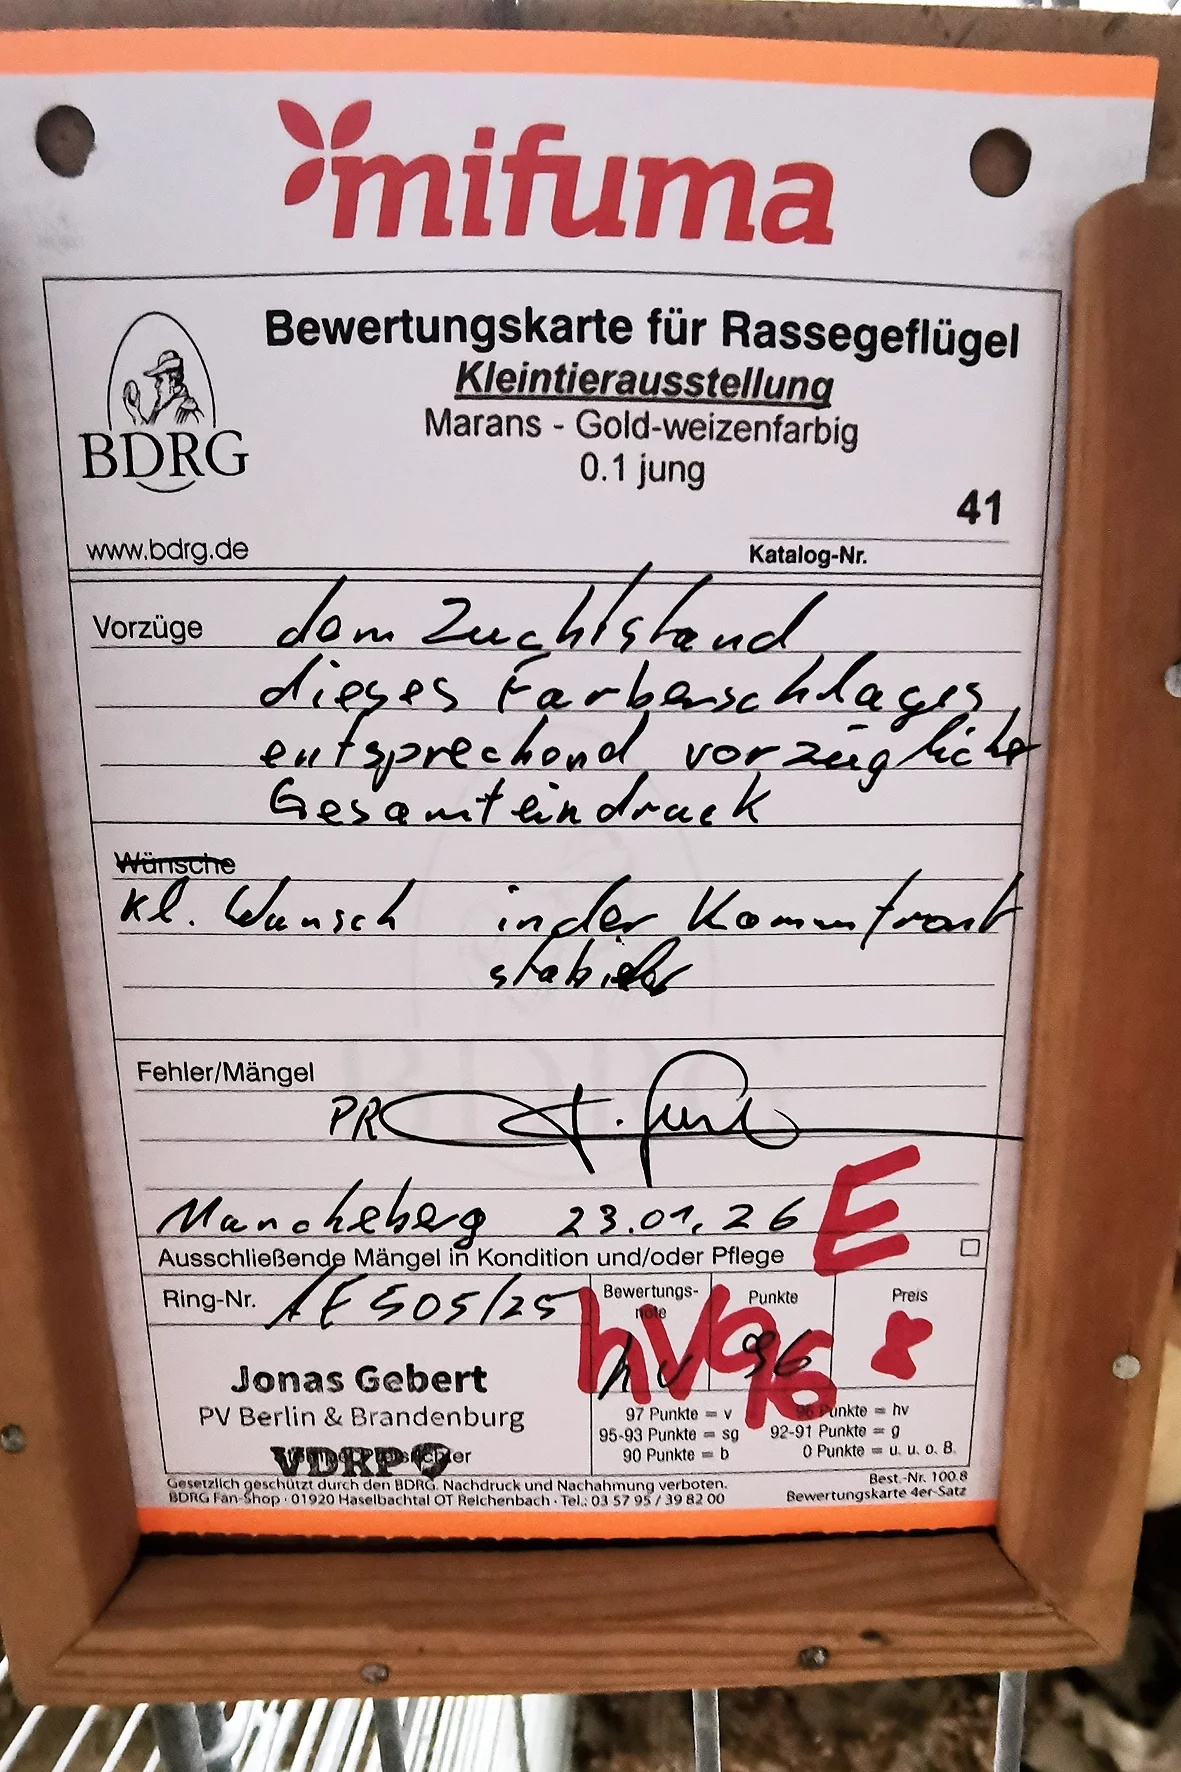 mifuma
Bewertungskarte für Rassegeflügel
Kleintierausstellung
Marans - Gold-weizenfarbig
0.1 jung
BDRG
41
www.bdrg.de
Katalog-Nr.
Vorzüge dem Zuchtstand
dieses Farbenschlages
entsprechend vorzüglicher
Gesamteindruck
Wünsche
kl. Wunsch in der Kammfront
stabiler
Fehler/Mängel
PR
Müncheberg 23.01.26 E
Ausschließende Mängel in Kondition und/oder Pflege
Ring-Nr. AE 505/25
Bewertungs-note Punkte Preis
hv 96
hv 96
Jonas Gebert
PV Berlin & Brandenburg
VDRP
97 Punkte = v 96 Punkte = hv
95-93 Punkte = sg 92-91 Punkte = g
90 Punkte = b 0 Punkte = u. u. o. B.
Gesetzlich geschützt durch den BDRG. Nachdruck und Nachahmung verboten. Best.-Nr. 100.8
BDRG Fan-Shop · 01920 Haselbachtal OT Reichenbach · Tel.: 03 57 95 / 39 82 00 Bewertungskarte 4er-Satz